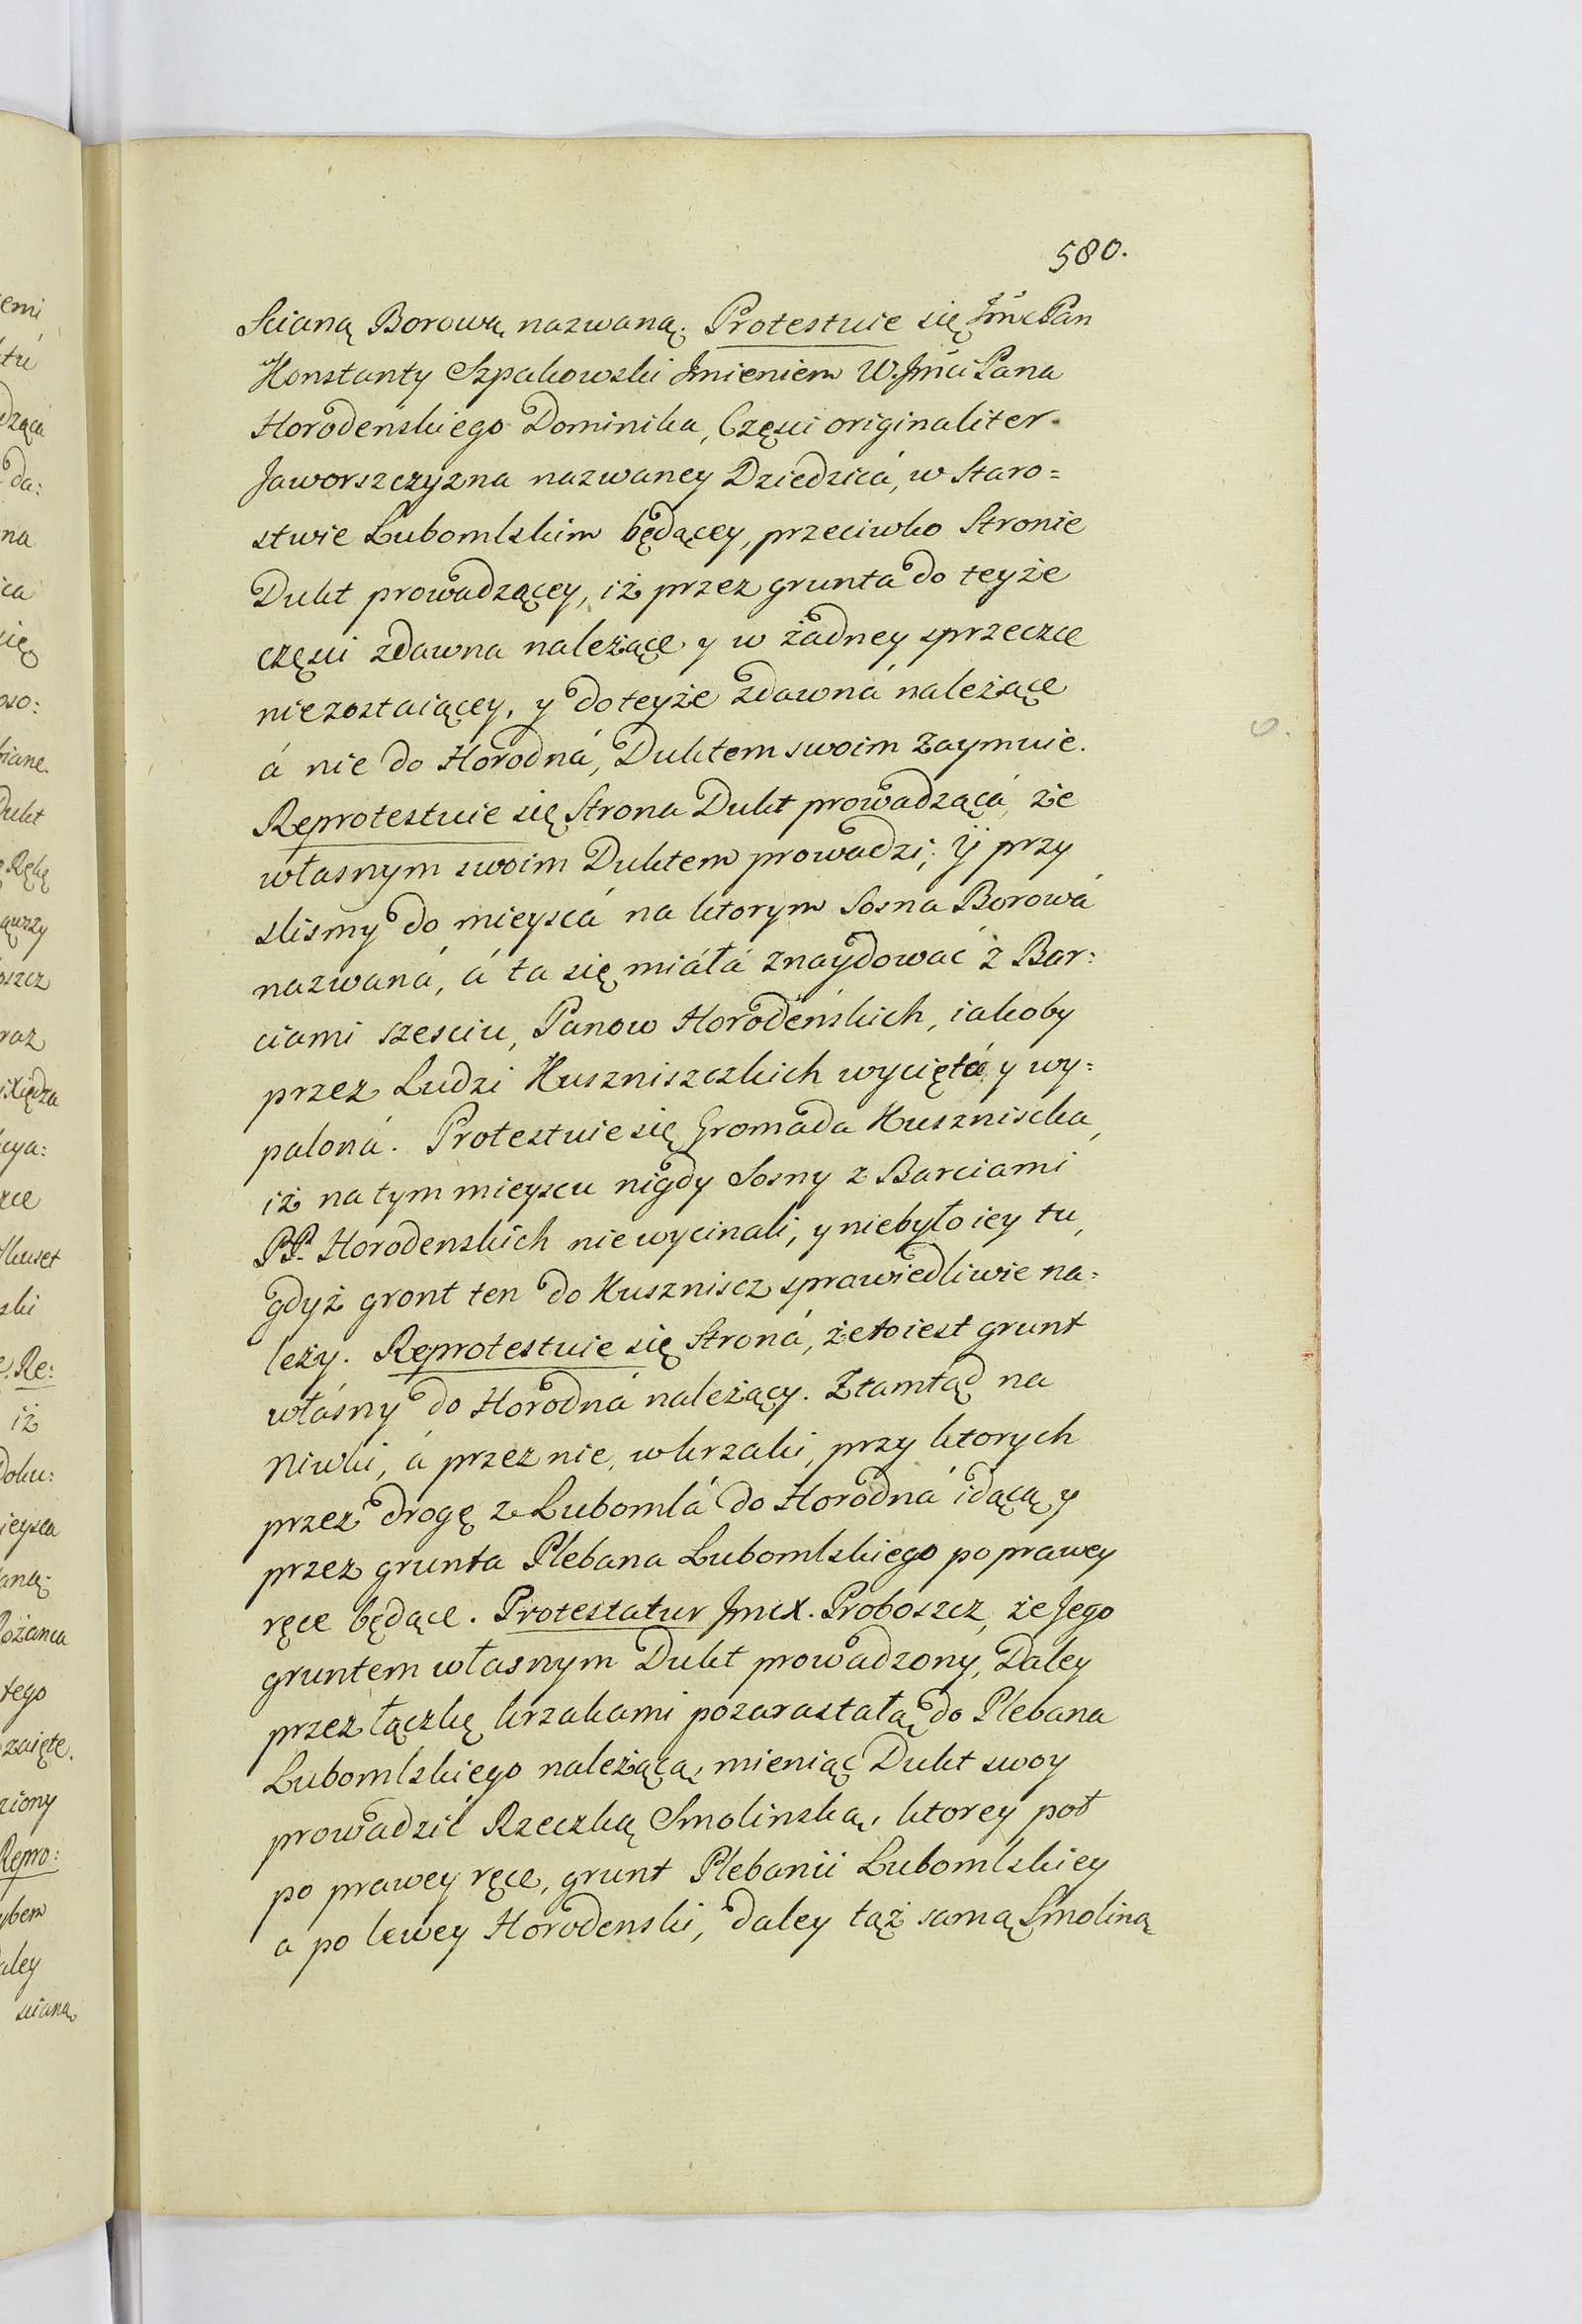 580.
Scianą Borową nazwaną. Protestuie się Jmć Pan
Konstanty Szpakowski Jmieniem W. Jmći Pana
Horodeńskiego Dominika, Części originaliter
Jaworszczyzna nazwaney Dziedzicá, w Staro=
stwie Lubomlskim będącey, przeciwko Stronie
Dukt prowadzącey, iż przez grunta do teyże
części zdawna należące y w żadney sprzeczce
niezostaiącey, y do teyże zdawná należące
á nie do Horodná, Duktem swoim zaymuie.
Reprotestuie się Strona Dukt prowadzącá, że
własnym swoim Duktem prowadzi; Ÿ przy
slismy do mieyscá na ktorym Sosna Borowá
nazwaná, á ta się miáłá znaydować z Bar:
ciami szesciu, Panow Horodeńskich, iakoby
przez Ludzi Huszniszczkich wyciętá y wy=
paloná. Protestuie się Gromada Huszniscka,
iż na tym mieyscu nigdy Sosny z Barciami
PP. Horodenskich nie wycinali, y niebyło iey tu,
gdyż gront ten do Huszniscz sprawiedliwie na=
leży. Reprotestuie się Stroná, że to iest grunt
włásny do Horodná należący. Ztamtąd na
Niwki, á przez nie, w krzaki, przy ktorych
przez drogę z Lubomlá do Horodná idącą y
przez grunta Plebana Lubomlskiego po prawey
ręce będące. Protestatur JmcX. Proboszcz, że Jego
gruntem własnym Dukt prowadzony, Daley
przez łączkę krzakami pozarastałą do Plebana
Lubomlskiego należącą, mieniąc Dukt swoy
prowadzić Rzeczką Smolinską, ktorey poł
po prawey ręce, grunt Plebanii Lubomlskiey
a po lewey Horodenski, daley taż samą Smoliną